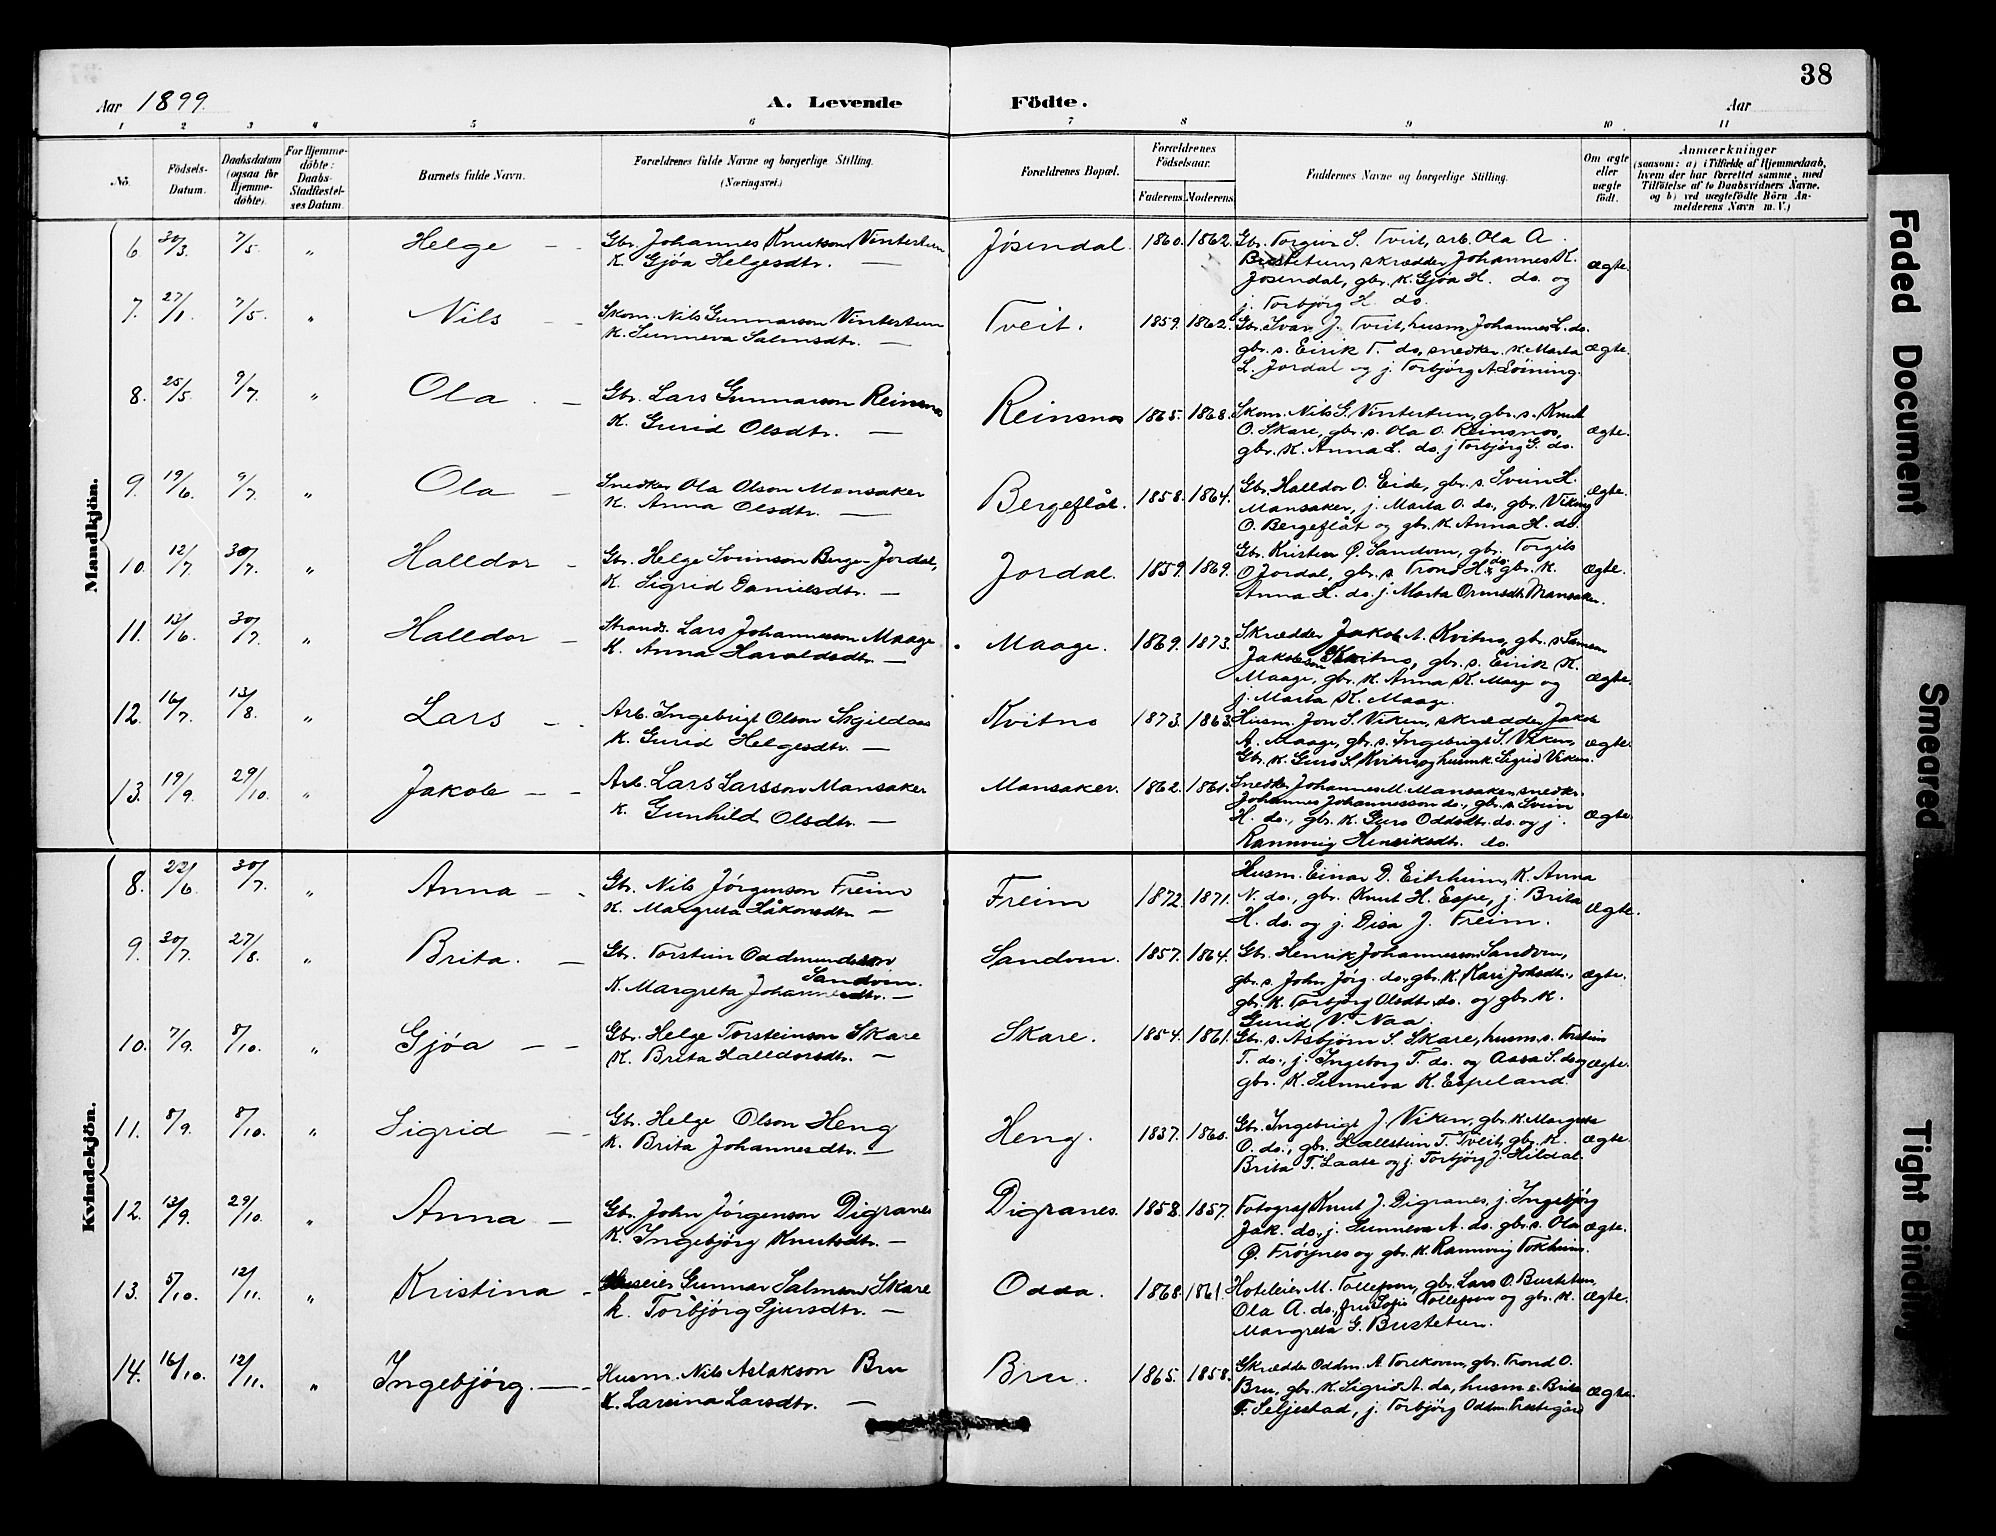 38
Aar 1899.
A. Levende Födte.
Aar
1 2 3 4 5 6 7 8 9 10 11
No.
Födsels-Datum.
Daabsdatum (ogsaa for Hjemme-döbte).
For Hjemme-döbte: Daabs-Stadfæstel-ses Datum.
Barnets fulde Navn.
Forældrenes fulde Navne og borgerlige Stilling.
(Næringsvei.)
Forældrenes Bopæl.
Forældrenes Födselsaar.
Faderens Moderens
Faddernes Navne og borgerlige Stilling.
Om ægte eller uægte födt.
Anmærkninger
(saasom: a) i Tilfælde af Hjemmedaab,
hvem der har forrettet samme, med
Tilföielse af to Daabsvidners Navne,
og b) ved uægtefödte Börn An-
melderens Navn m. V.)
Mandkjön.
6. 30/3. 7/5. " Helge — Gbr. Johannes Knutson Vintertun
K. Gjøa Helgesdtr. —
Jösendal. 1860. 1862. Gbr. Torgeir S. Tveit, arb. Ola A.
Bustetun, skrædder Johannes K.
Jösendal, gbr. k. Gjöa H. do. og
j. Torbjörg H. do.
ægte.
7. 27/1. 7/5. " Nils — Skom. Nils Gunnarson Vintertun
K. Sunneva Salmsdtr. —
Tveit. 1859. 1862. Gbr. Ivar J. Tveit, husm. Johannes L. do.
gbr. s. Eirik T. do, snedker. k. Marta
L. Jordal og j. Torbjörg A. Löining.
ægte.
8. 25/5. 9/7. " Ola. — Gbr. Lars Gunnarson Reinsnos
K. Gurid Olsdtr. —
Reinsnos 1865. 1868. Skom. Nils G. Vintertun, gbr. s. Knut
O. Skare, gbr. s. Ola O. Reinsnos,
gbr. K. Anna L. do. j Torbjörg G. do.
ægte.
9. 19/6. 9/7. " Ola — Snedker Ola Olson Mansaker
K. Anna Olsdtr. —
Bergeflåt. 1858. 1864. Gbr. Halldor O. Eide, gbr. s. Svein H.
Mansaker, j. Marta O. do, gbr. Viking
O. Bergeflåt og gbr. k. Anna H. do.
ægte.
10. 12/7. 30/7. " Halldor — Gbr. Helge Sveinson Berge-Jordal,
K. Sigrid Danielsdtr. —
Jordal. 1859. 1869. Gbr. Kristen P. Sandven, gbr. Torgils
O Jordal, gbr. s. Trond H. do, gbr. k.
Anna H. do. j. Marta Ormsdtr Mansaker.
ægte.
11. 13/6. 30/7. " Halldor — Strands. Lars Johannesson Maage
K. Anna Haraldsdtr. —
Maage. 1869. 1873. Skrædder Jakob A. Kvitno, gbr. s. Samson
Jakobson Kvitno, gbr. s. Eirik K.
Maage, gbr. k. Anna K. Maage og
j. Marta K. Maage.
ægte.
12. 16/7. 13/8. " Lars — Arb. Ingebrigt Olson Skjildaas
K. Gurid Helgesdtr. —
Kvitno 1873. 1863. Husm. Jon S. Viken, skrædder Jakob
A. Maage, gbr. s. Ingebrigt S. Viken,
Gbr. k. Guro S. Kvitno og husm k. Sigrid Viken.
ægte.
13. 19/9. 29/10. " Jakob — Arb. Lars Larsson Mansaker
K. Gunhild Olsdtr. —
Mansaker. 1862. 1861. Snedker Johannes M. Mansaker, snedkr.
Johannes Johannesson do., gbr. s. Svein
H. do., gbr. k. Guro Oddsdtr. do. og j.
Rannveig Henriksdtr. do.
ægte.
Kvindekjön.
8. 22/6. 30/7. " Anna — Gbr. Nils Jörgenson Freim
K. Margreta Håkonsdtr —
Freim 1872. 1871. Husm. Einar D. Eitrheim, K. Anna
N. do., gbr. Knut H. Espe, j. Brita
H. do. og j. Disa J. Freim.
ægte.
9. 30/7. 27/8. " Brita. — Gbr. Torstein Oddmundsson
Sandven.
K. Margreta Johannesdtr. —
Sandven. 1857. 1864. Gbr. Henrik Johannesson Sandven,
gbr. s. John Jörg. do, gbr. k. Kari Johsdtr.,
gbr. k. Torbjörg Olsdtr. do. og gbr. k.
Gurid V. Naa.
ægte.
10. 7/9. 8/10. " Gjöa — Gbr. Helge Torsteinson Skare
K. Brita Halldorsdtr. —
Skare. 1854. 1861. Gbr. s. Asbjörn S. Skare, husm. s. Torstein
T. do., j. Ingeborg T. do. og Aasa S. do og
gbr. K. Sunneva K. Espeland.
ægte.
11. 8/9. 8/10. " Sigrid — Gbr. Helge Olson Heng
K. Brita Johannesdtr. —
Heng. 1837. 1860. Gbr. Ingebrigt J. Viken, gbr. k. Margreta
O. do., gbr. Hallstein T. Tveit, gbr. k.
Brita T. Laate og j. Torbjörg J. Hildal.
ægte.
12. 13/9. 29/10. " Anna — Gbr. John Jörgenson Digranes
K. Ingebjörg Knutsdtr. —
Digranes. 1858. 1857. Fotograf Knut J. Digranes, j. Ingebjörg
Jak. do., j. Sunneva A. do. gbr. s. Ola
P. Fröynes og gbr. k. Rannveig Tokheim.
ægte.
13. 5/10. 12/11. " Kristina — Huseier Gunnar Salmson Skare
k. Torbjörg Gjursdtr. —
Odda. 1868. 1861. Hoteleier M. Tollefsen, gbr. Lars O. Bustetun,
Ola A. do., fru Sofie Tollefsen og gbr. k.
Margreta G. Bustetun.
ægte.
14. 16/10. 12/11. " Ingebjörg. — Husm. Nils Aslakson Bru
K. Larsina Larsdtr. —
Bru. 1865. 1858. Skrædder Oddm. A. Torekoven, gbr. Trond O.
Bru, gbr. k. Sigrid A. do, husm s. Brita
T. Seljestad, j. Torbjörg Oddm. Prestegård
ægte.
Faded Document
Smeared
Tight Binding